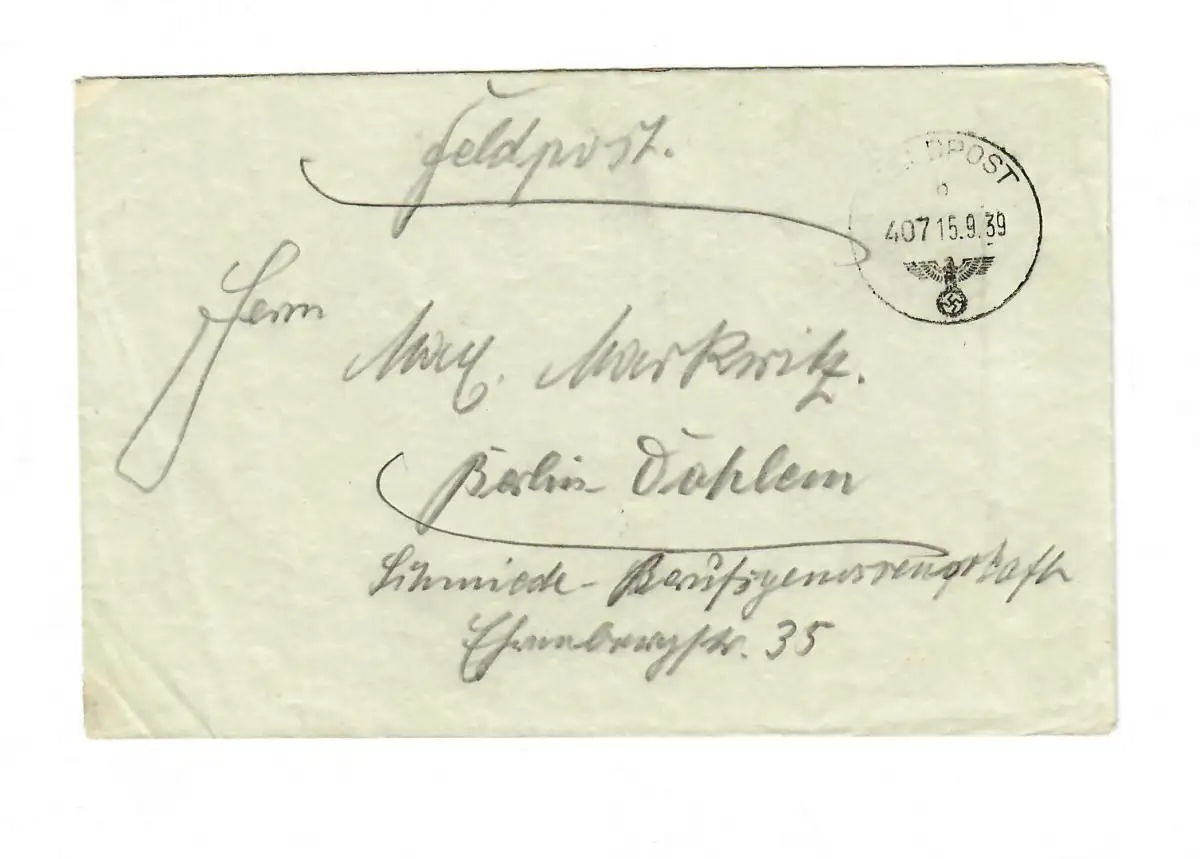 Feldpost.
FELDPOST
b
407 15.9.39
Herrn
Max Markwitz.
Berlin Dahlem
Schmiede-Berufsgenossenschaft
Ehrenbergstr. 35